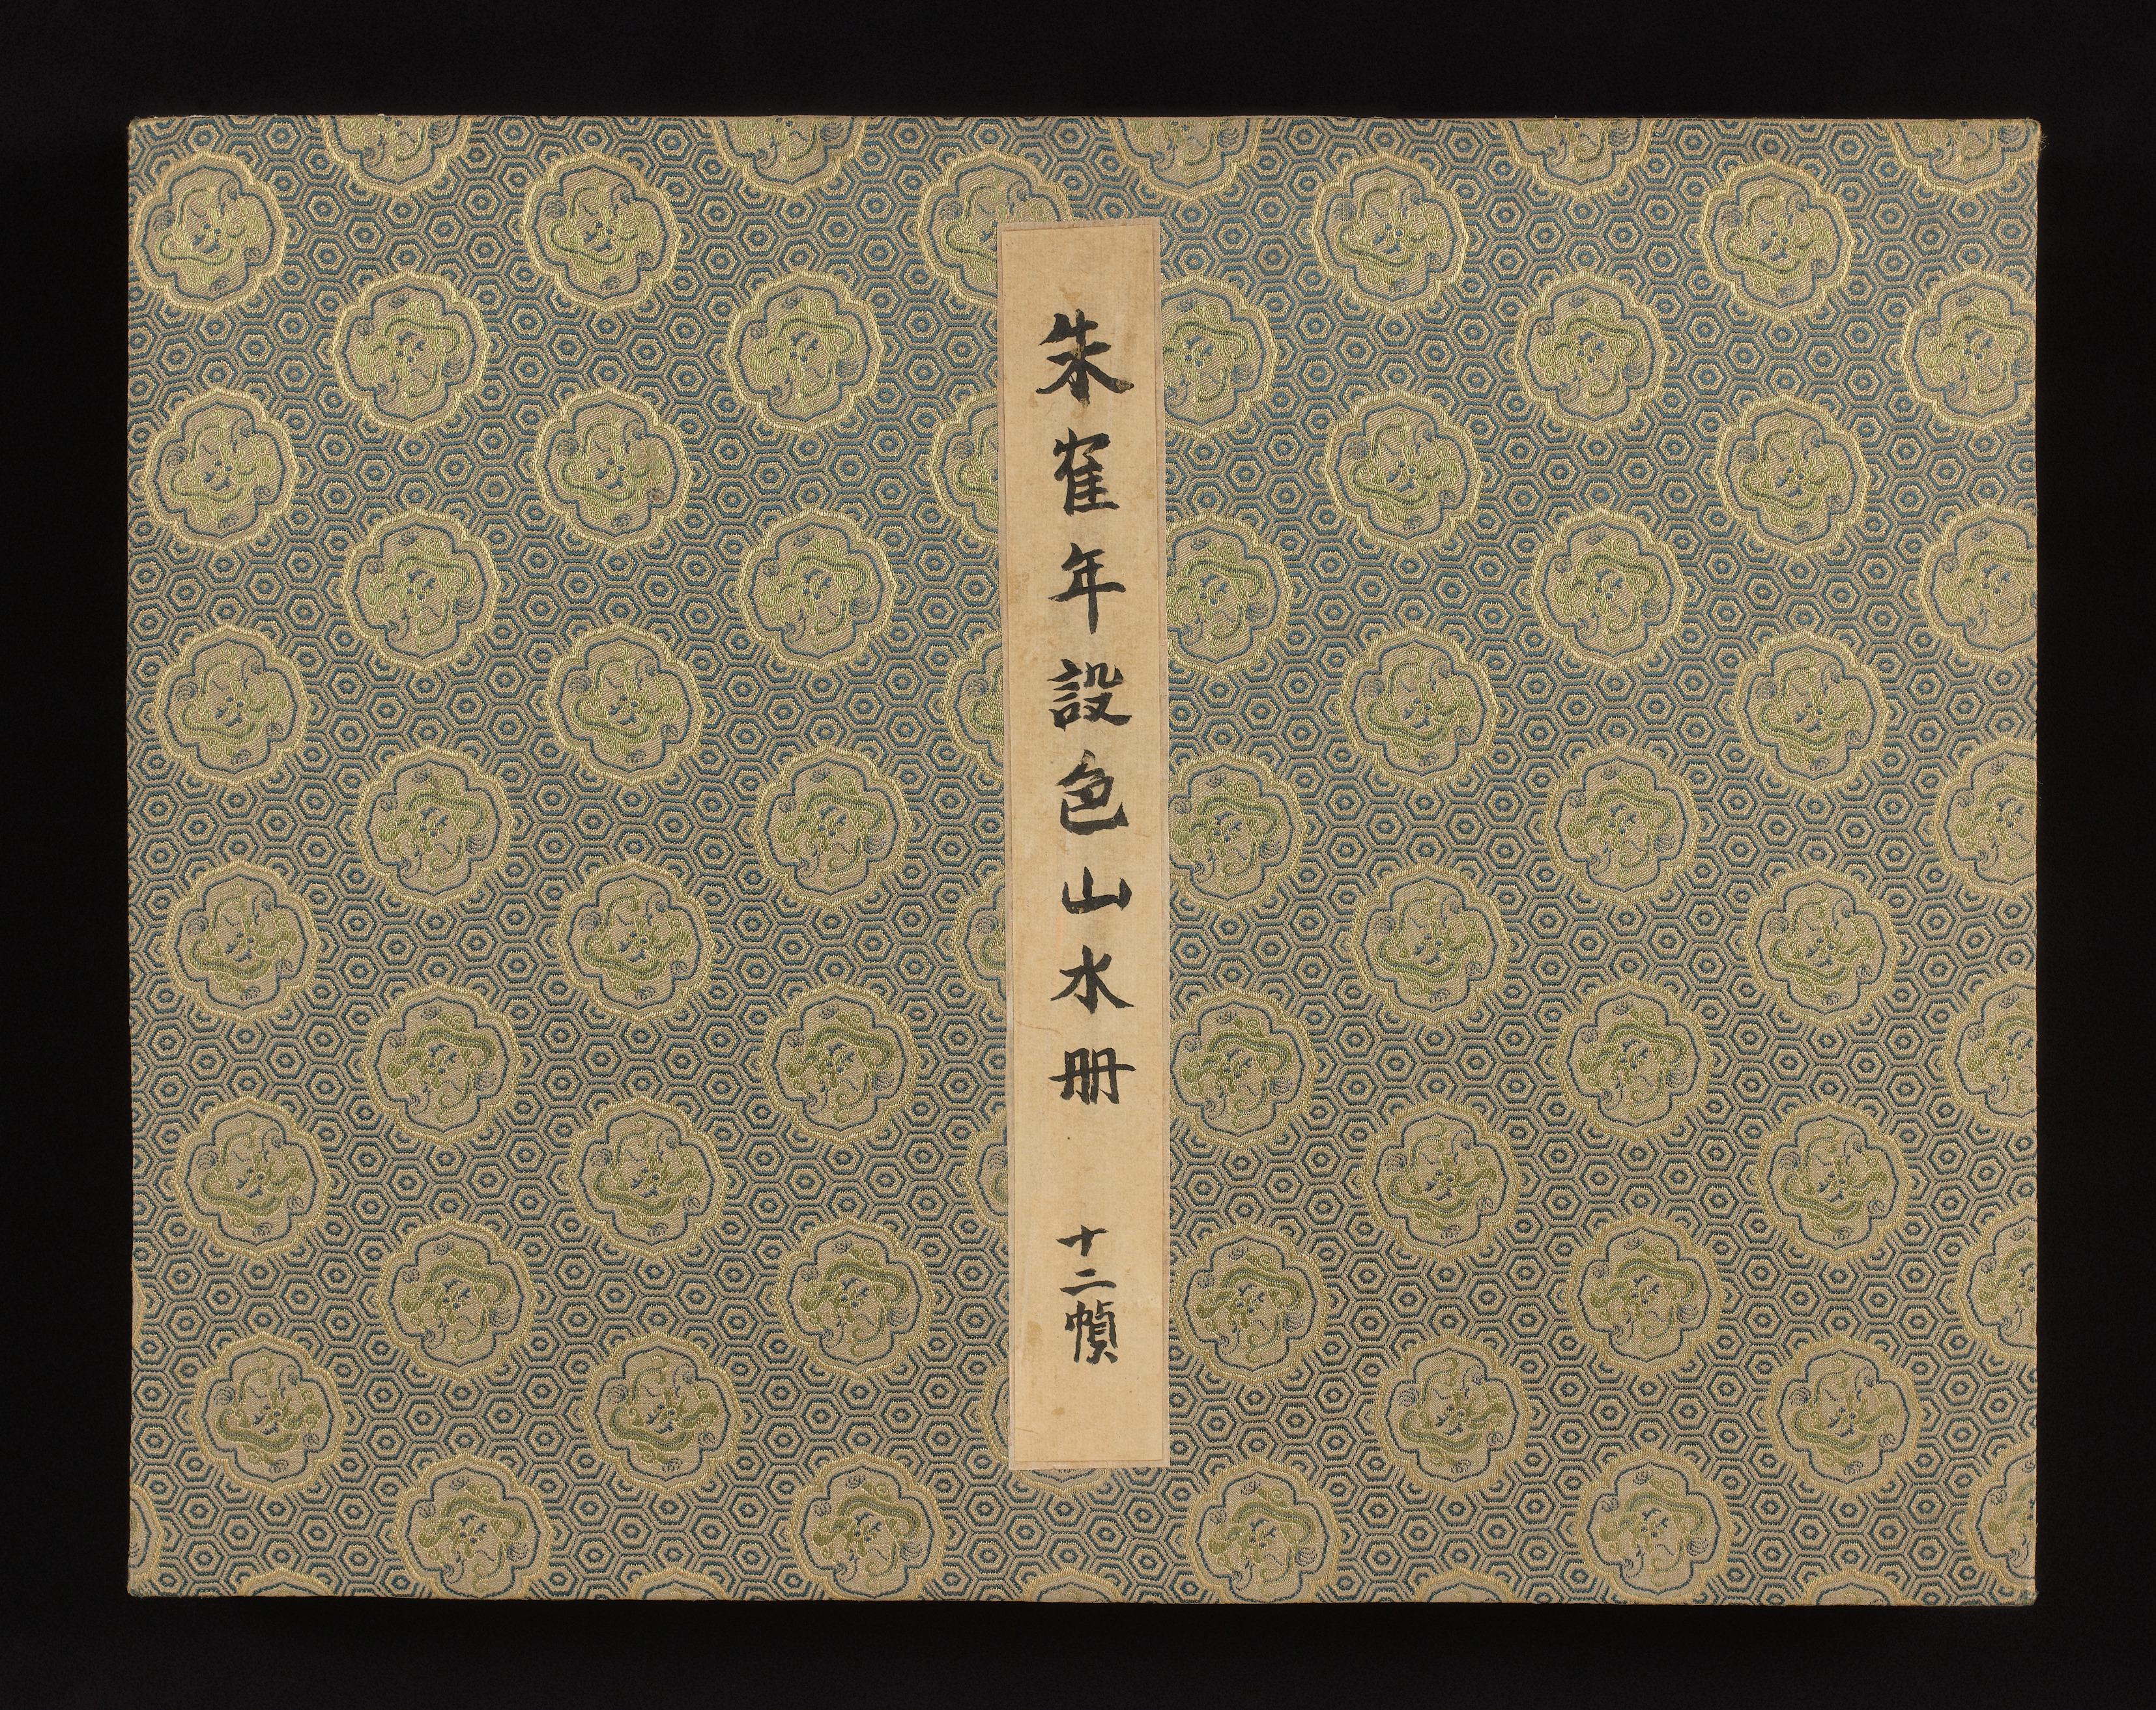 朱隺年設色山水册 十二幀